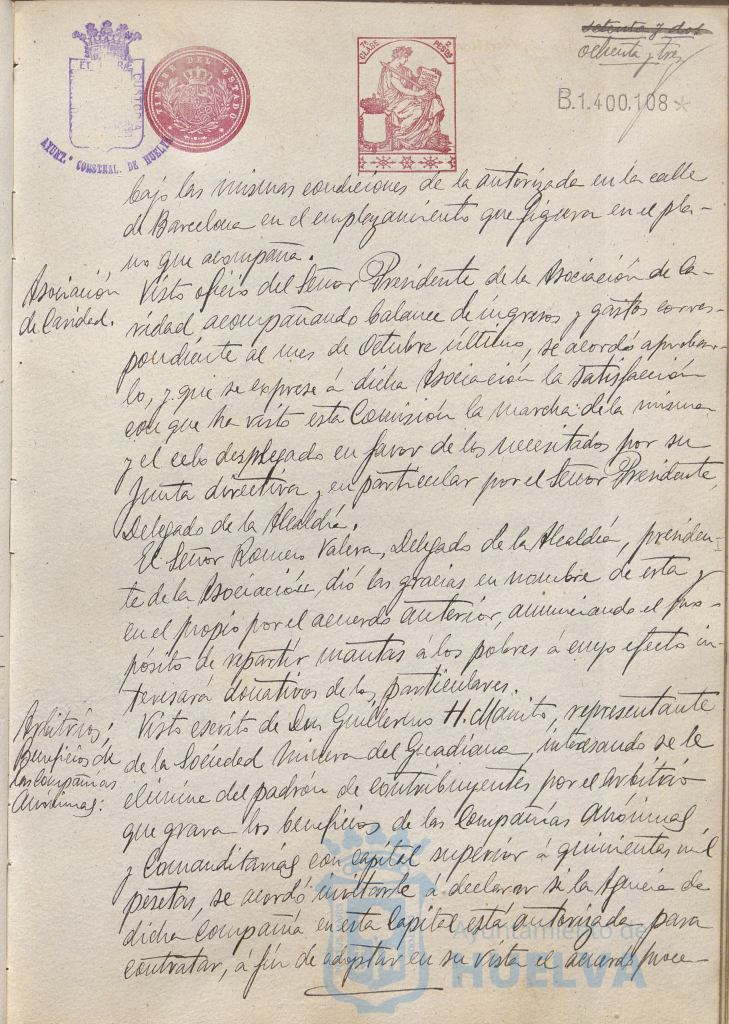 setenta y dos
ochenta y tres
7ª CLASE
2 PESETAS
TIMBRE DEL ESTADO
AYUNT. CONSTNAL. DE HUELVA
B.1.400.108
bajo las mismas condiciones de la autorizada en la calle
de Barcelona en el emplazamiento que figura en el pla-
no que acompaña.
Asociación
de Caridad.
Visto oficio del Señor Presidente de la Asociación de Ca-
ridad acompañando balance de ingresos y gastos corres-
pondiente al mes de Octubre último, se acordó aprobar-
lo, y que se exprese á dicha Asociación la satisfacción
con que ha visto esta Comisión la marcha de la misma
y el celo desplegado en favor de los necesitados por su
Junta directiva y en particular por el Señor Presidente,
Delegado de la Alcaldía.
El Señor Romero Valera, Delegado de la Alcaldía, presiden-
te de la Asociación, dió las gracias en nombre de esta y
en el propio por el acuerdo anterior, anunciando el pro-
pósito de repartir mantas á los pobres á cuyo efecto in-
teresará donativos de los particulares.
Arbitrios,
Beneficios de
las Compañías
Anónimas:
Visto escrito de Don Guillermo H. , representante
de la Sociedad Minera del Guadiana, interesando se le
elimine del padrón de contribuyentes por el arbitrio
que grava los beneficios de las Compañías Anónimas
y Comanditarias con capital superior á quinientas mil
pesetas, se acordó invitarle á declarar si la Agencia de
dicha Compañía en esta Capital está autorizada para
contratar, á fin de adoptar en su vista el acuerdo proce-
Ayuntamiento de
HUELVA